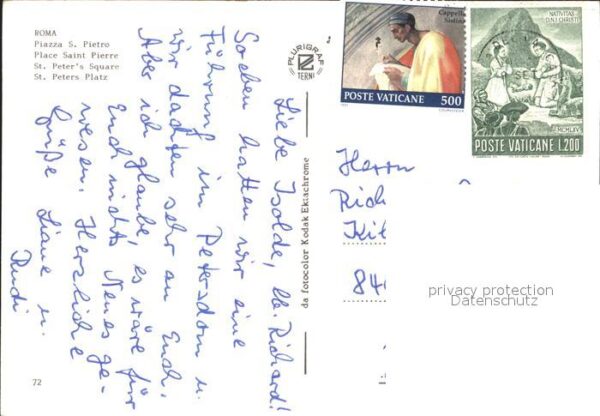 ROMA
Piazza S. Pietro
Place Saint Pierre
St. Peter's Square
St. Peters Platz
Liebe Isolde, lb. Richard!
Soeben hatten wir eine
Führung im Petersdom u.
wir dachten sehr an Euch.
Aber ich glaube, es wäre für
Euch nichts Neues ge-
wesen. Herzliche
Grüße Liane u.
Rudi
72
PLURIGRAF
TERNI
da fotocolor Kodak Ektachrome
Cappella
Sistina
POSTE VATICANE 500
NATIVITAS
D.N.I. CHRISTI
POSTE VATICANE L.200
Herrn
Rich
Kit
84
privacy protection
Datenschutz